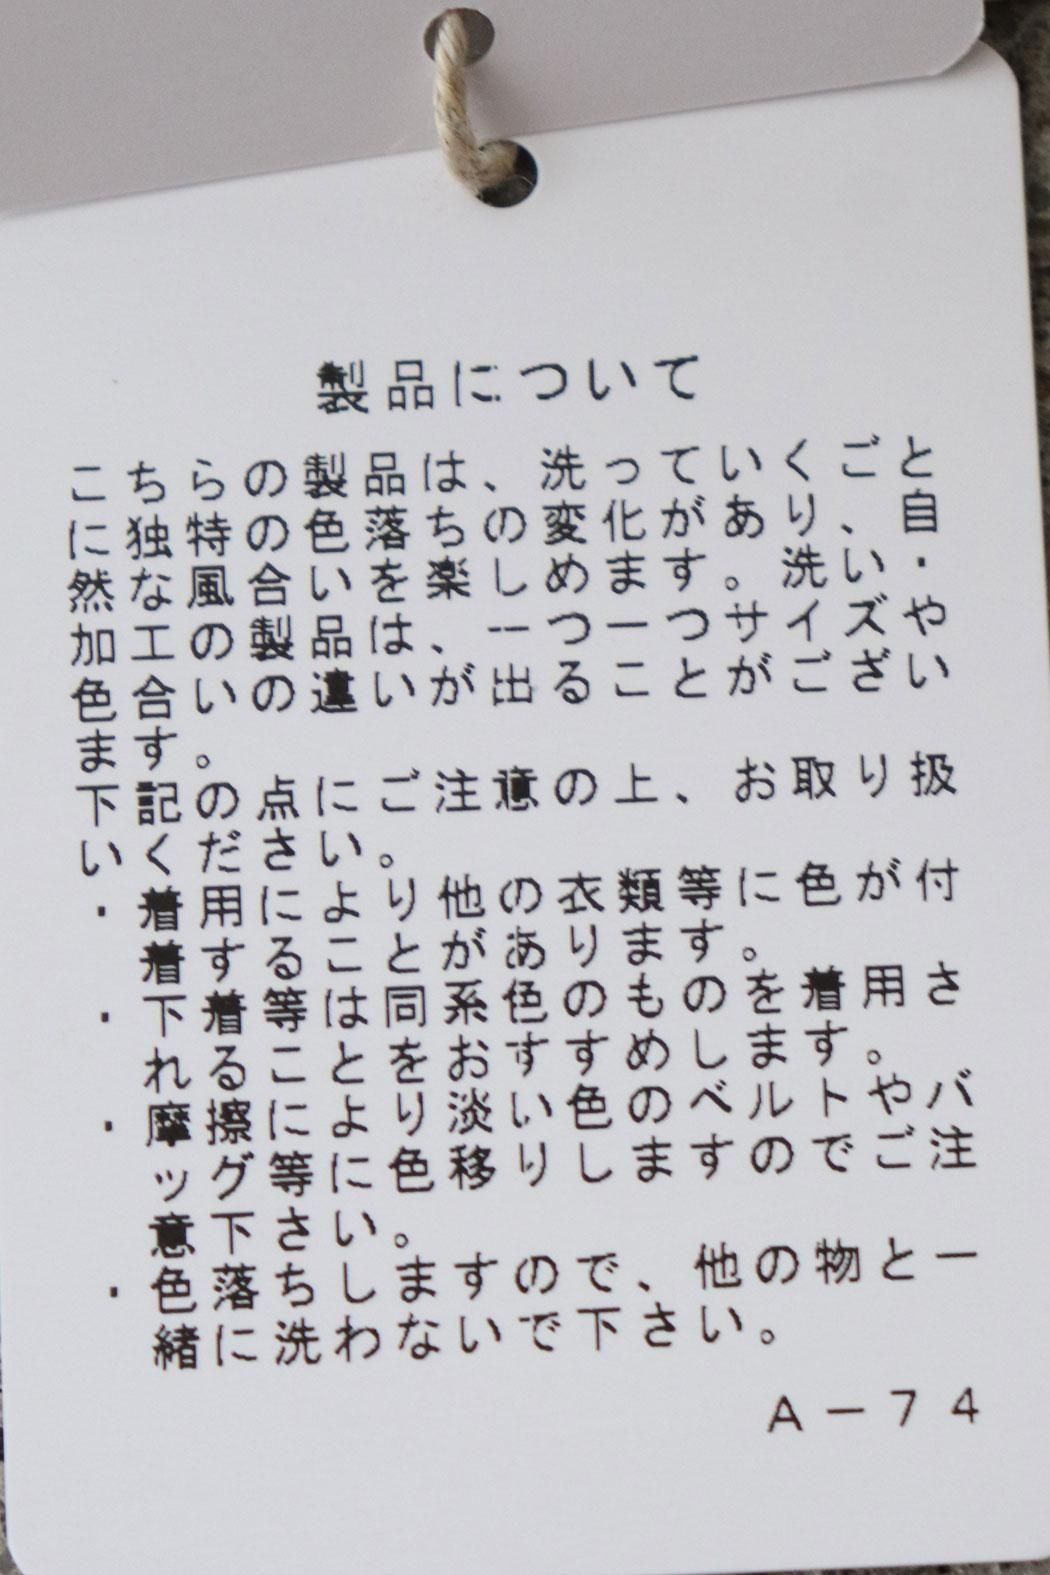 製品について
こちらの製品は、洗っていくごと
に独特の色落ちの変化があり、自
然な風合いを楽しめます。洗い・
加工の製品は、一つ一つサイズや
色合いの違いが出ることがござい
ます。
下記の点にご注意の上、お取り扱
いください。
・着用により他の衣類等に色が付
着することがあります。
・下着等は同系色のものを着用さ
れることをおすすめします。
・摩擦により淡い色のベルトやバ
ッグ等に色移りしますのでご注
意下さい。
・色落ちしますので、他の物と一
緒に洗わないで下さい。
A－74